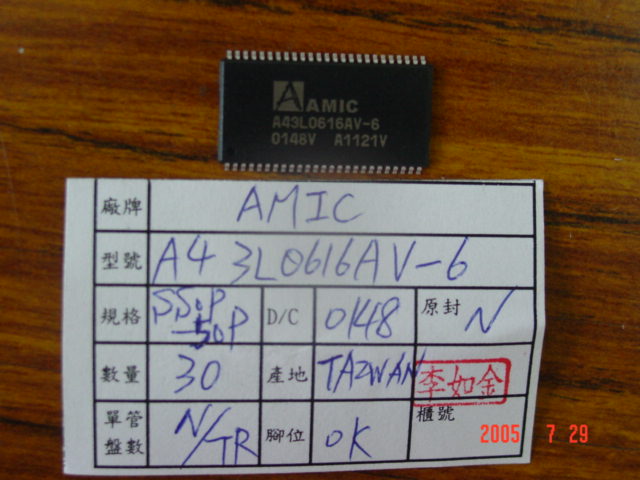 AMIC
A43L0616AV-6
0148V A1121V
廠牌 AMIC
型號 A43L0616AV-6
規格 SSOP-50P D/C 0148 原封 N
數量 30 產地 TAIWAN 李如金
單管盤數 N/TR 腳位 OK 櫃號
2005 7 29